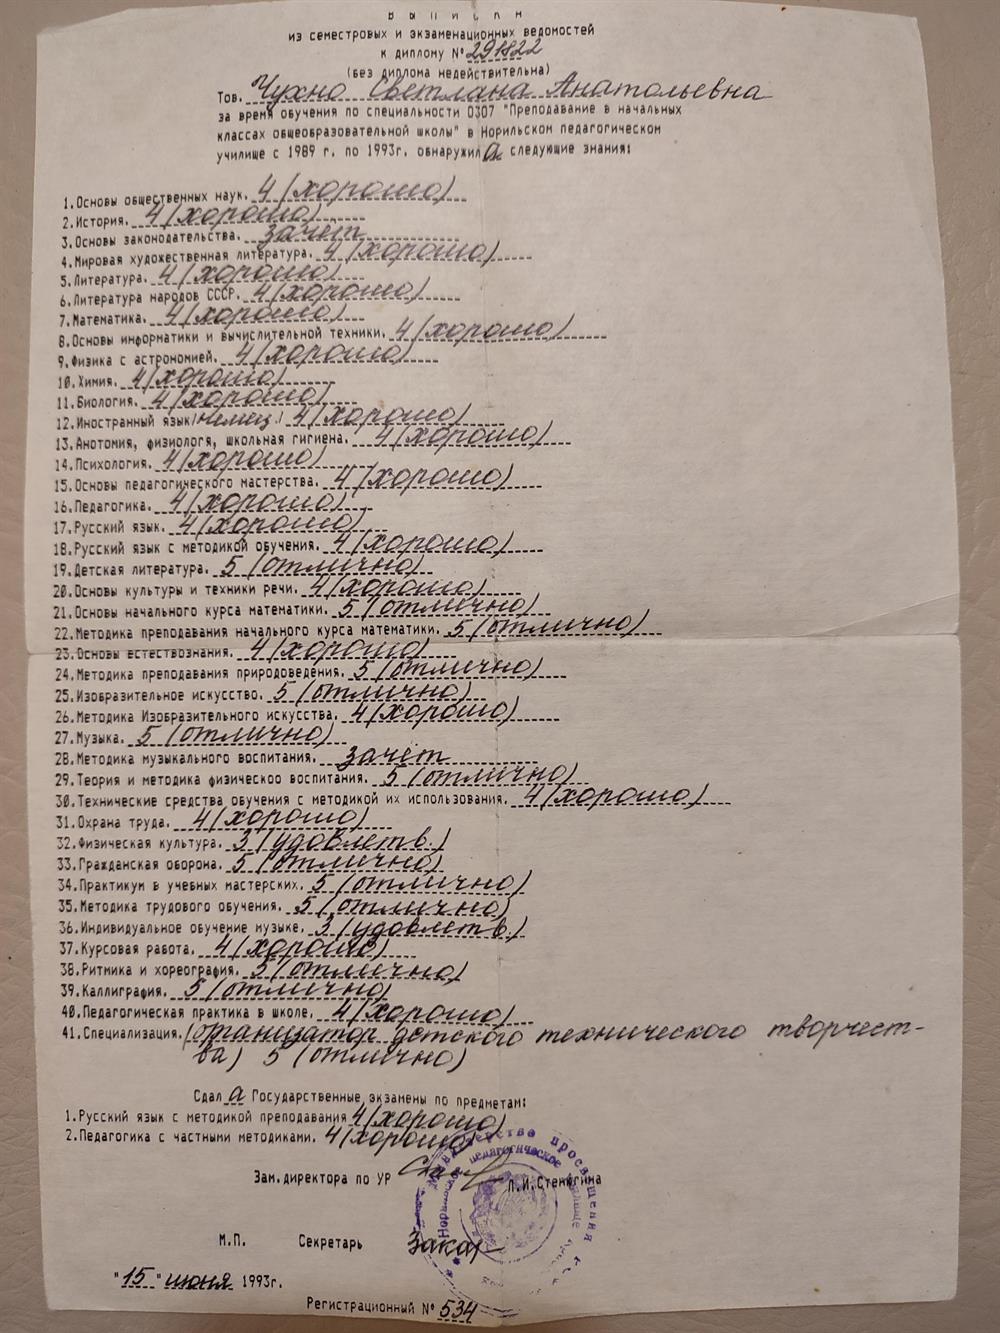 ВЫПИСКА
из семестровых и экзаменационных ведомостей
к диплому №291822
(без диплома недействительна)
Тов. Чухно Светлана Анатольевна
за время обучения по специальности 0307 "Преподавание в начальных
классах общеобразовательной школы" в Норильском педагогическом
училище с 1989 г. по 1993г. обнаружила следующие знания:
1.Основы общественных наук. 4 (хорошо)
2.История. 4 (хорошо)
3.Основы законодательства. зачет
4.Мировая художественная литература. 4 (хорошо)
5.Литература. 4 (хорошо)
6.Литература народов СССР. 4 (хорошо)
7.Математика. 4 (хорошо)
8.Основы информатики и вычислительной техники. 4 (хорошо)
9.Физика с астрономией. 4 (хорошо)
10.Химия. 4 (хорошо)
11.Биология. 4 (хорошо)
12.Иностранный язык (немец.) 4 (хорошо)
13.Анотомия, физиологя, школьная гигиена. 4 (хорошо)
14.Психология. 4 (хорошо)
15.Основы педагогического мастерства. 4 (хорошо)
16.Педагогика. 4 (хорошо)
17.Русский язык. 4 (хорошо)
18.Русский язык с методикой обучения. 4 (хорошо)
19.Детская литература. 5 (отлично)
20.Основы культуры и техники речи. 4 (хорошо)
21.Основы начального курса математики. 5 (отлично)
22.Методика преподавания начального курса математики. 5 (отлично)
23.Основы естествознания. 4 (хорошо)
24.Методика преподавания природоведения. 5 (отлично)
25.Изобразительное искусство. 5 (отлично)
26.Методика Изобразительного искусства. 4 (хорошо)
27.Музыка. 5 (отлично)
28.Методика музыкального воспитания. зачёт
29.Теория и методика физическоо воспитания. 5 (отлично)
30.Технические средства обучения с методикой их использования. 4 (хорошо)
31.Охрана труда. 4 (хорошо)
32.Физическая культура. 3 (удовлетв.)
33.Гражданская оборона. 5 (отлично)
34.Практикум в учебных мастерских. 5 (отлично)
35.Методика трудового обучения. 5 (отлично)
36.Индивидуальное обучение музыке. 3 (удовлетв.)
37.Курсовая работа. 4 (хорошо)
38.Ритмика и хореография. 5 (отлично)
39.Каллиграфия. 5 (отлично)
40.Педагогическая практика в школе. 4 (хорошо)
41.Специализация. (организатор детского технического творчест-
ва) 5 (отлично)
Сдала Государственные экзамены по предметам:
1.Русский язык с методикой преподавания 4 (хорошо)
2.Педагогика с частными методиками. 4 (хорошо)
Зам.директора по УР Л.И.Стенюгина
М.П. Секретарь Закар
"15" июня 1993г.
Регистрационный №534
Министерство просвещения
Норильское педагогическое училище